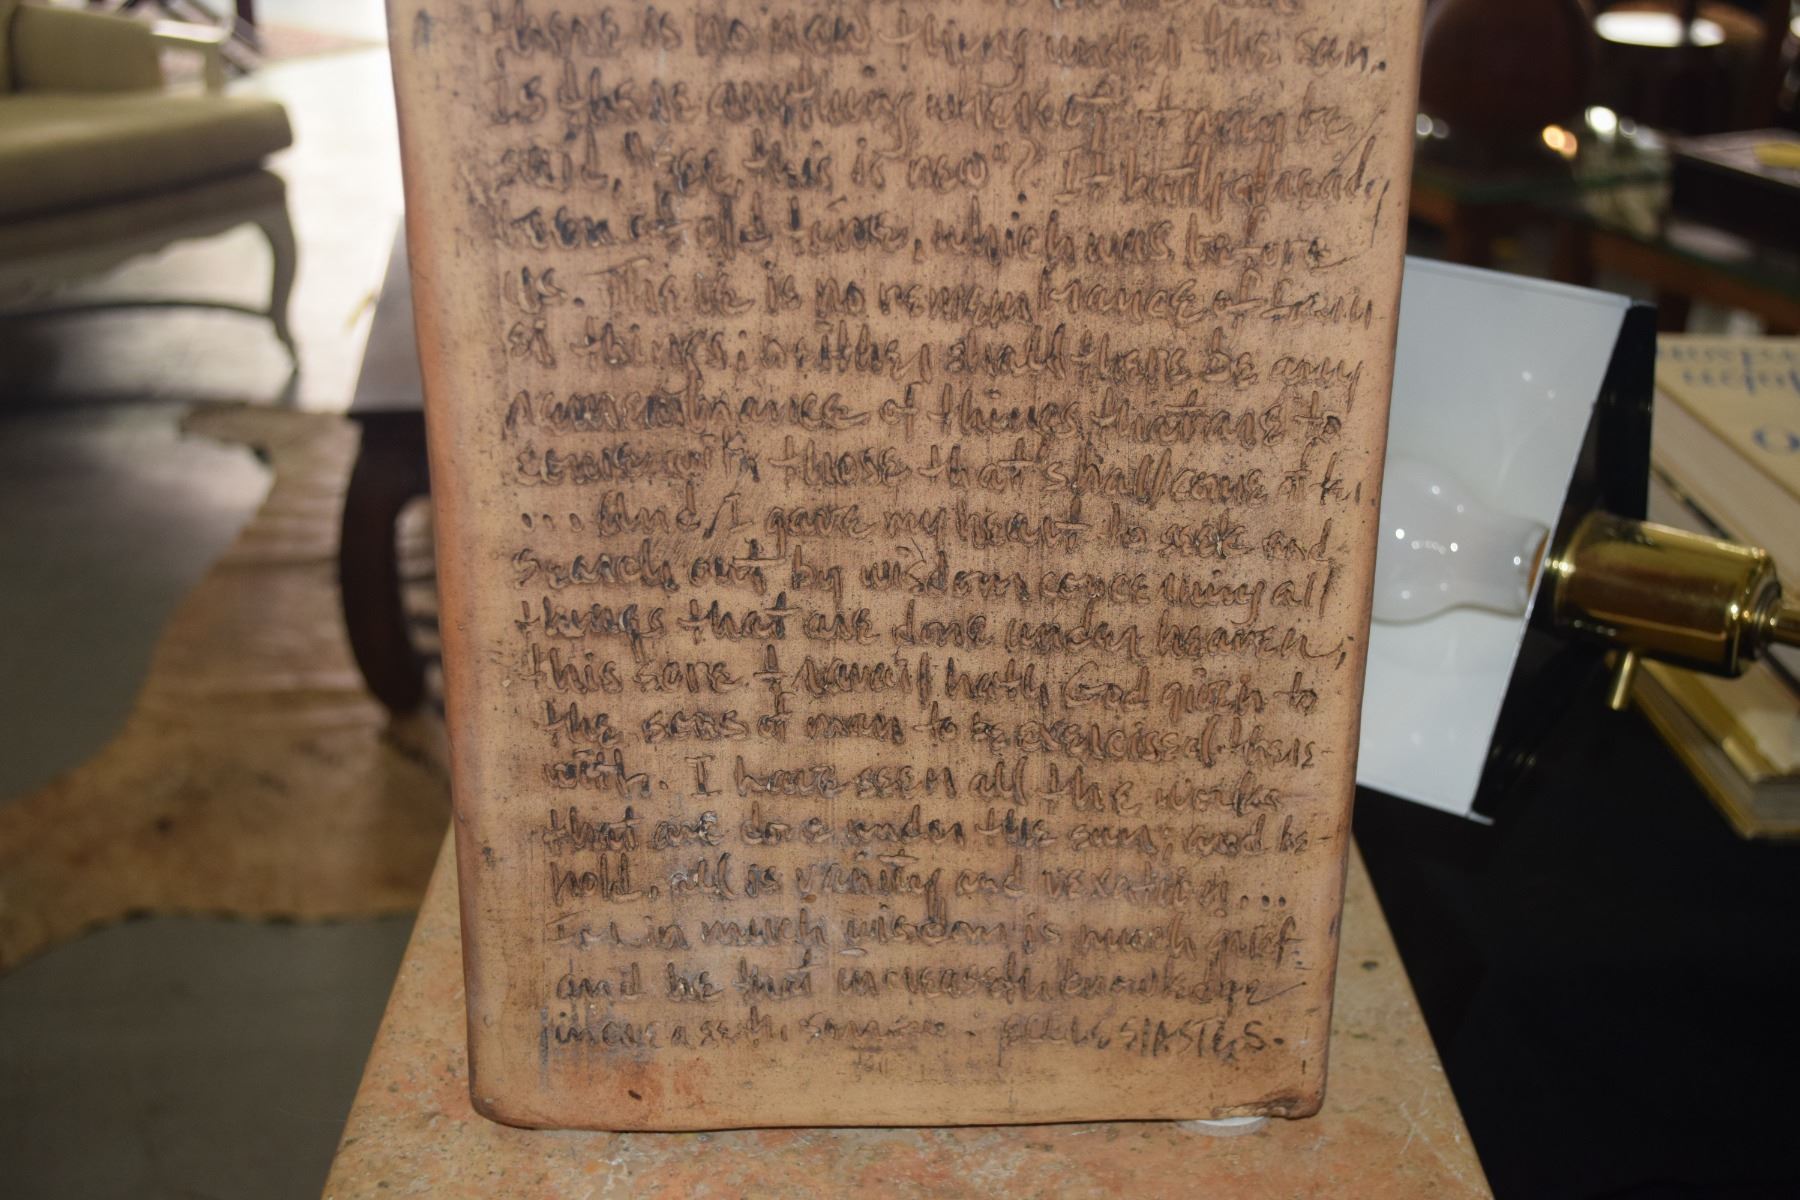 there is no new thing under the sun.
Is there anything whereof it may be
said, "see this is new"? It hath already
been of old time, which was before
us. There is no remembrance of form
er things; neither shall there be any
remembrance of things that are to
come with those that shall come after
... And I gave my heart to seek and
search out by wisdom concerning all
things that are done under heaven;
this sore travail hath God given to
the sons of man to be exercised there-
with. I have seen all the works
that are done under the sun; and be-
hold, all is vanity and vexation...
For in much wisdom is much grief
and he that increaseth knowledge
increaseth sorrow.